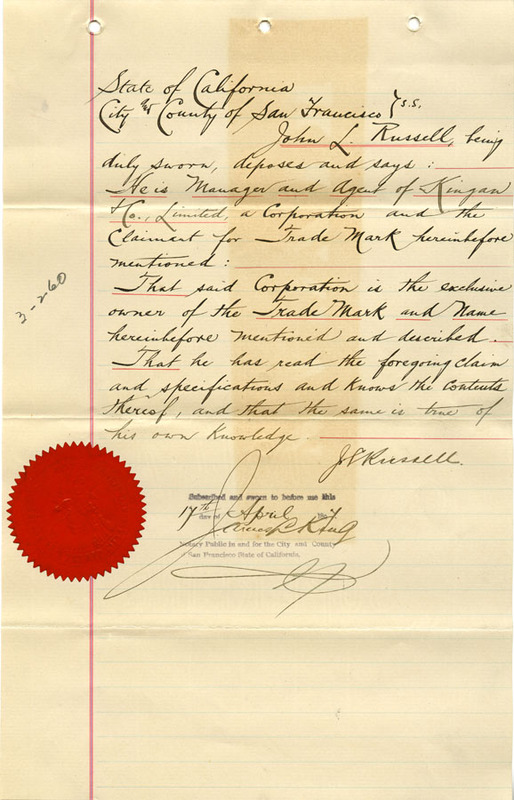 State of California
City & County of San Francisco } s.s.
John L. Russell, being
duly sworn, deposes and says :
He is Manager and Agent of Kingan
& Co., Limited, a Corporation and the
Claimant for Trade Mark hereinbefore
mentioned :
That said Corporation is the exclusive
owner of the Trade Mark and Name
hereinbefore mentioned and described.
That he has read the foregoing claim
and specifications and knows the contents
thereof, and that the same is true of
his own knowledge.
J L Russell.
Subscribed and sworn to before me this
17th day of April
King
Notary Public in and for the City and County
San Francisco State of California.
3-260